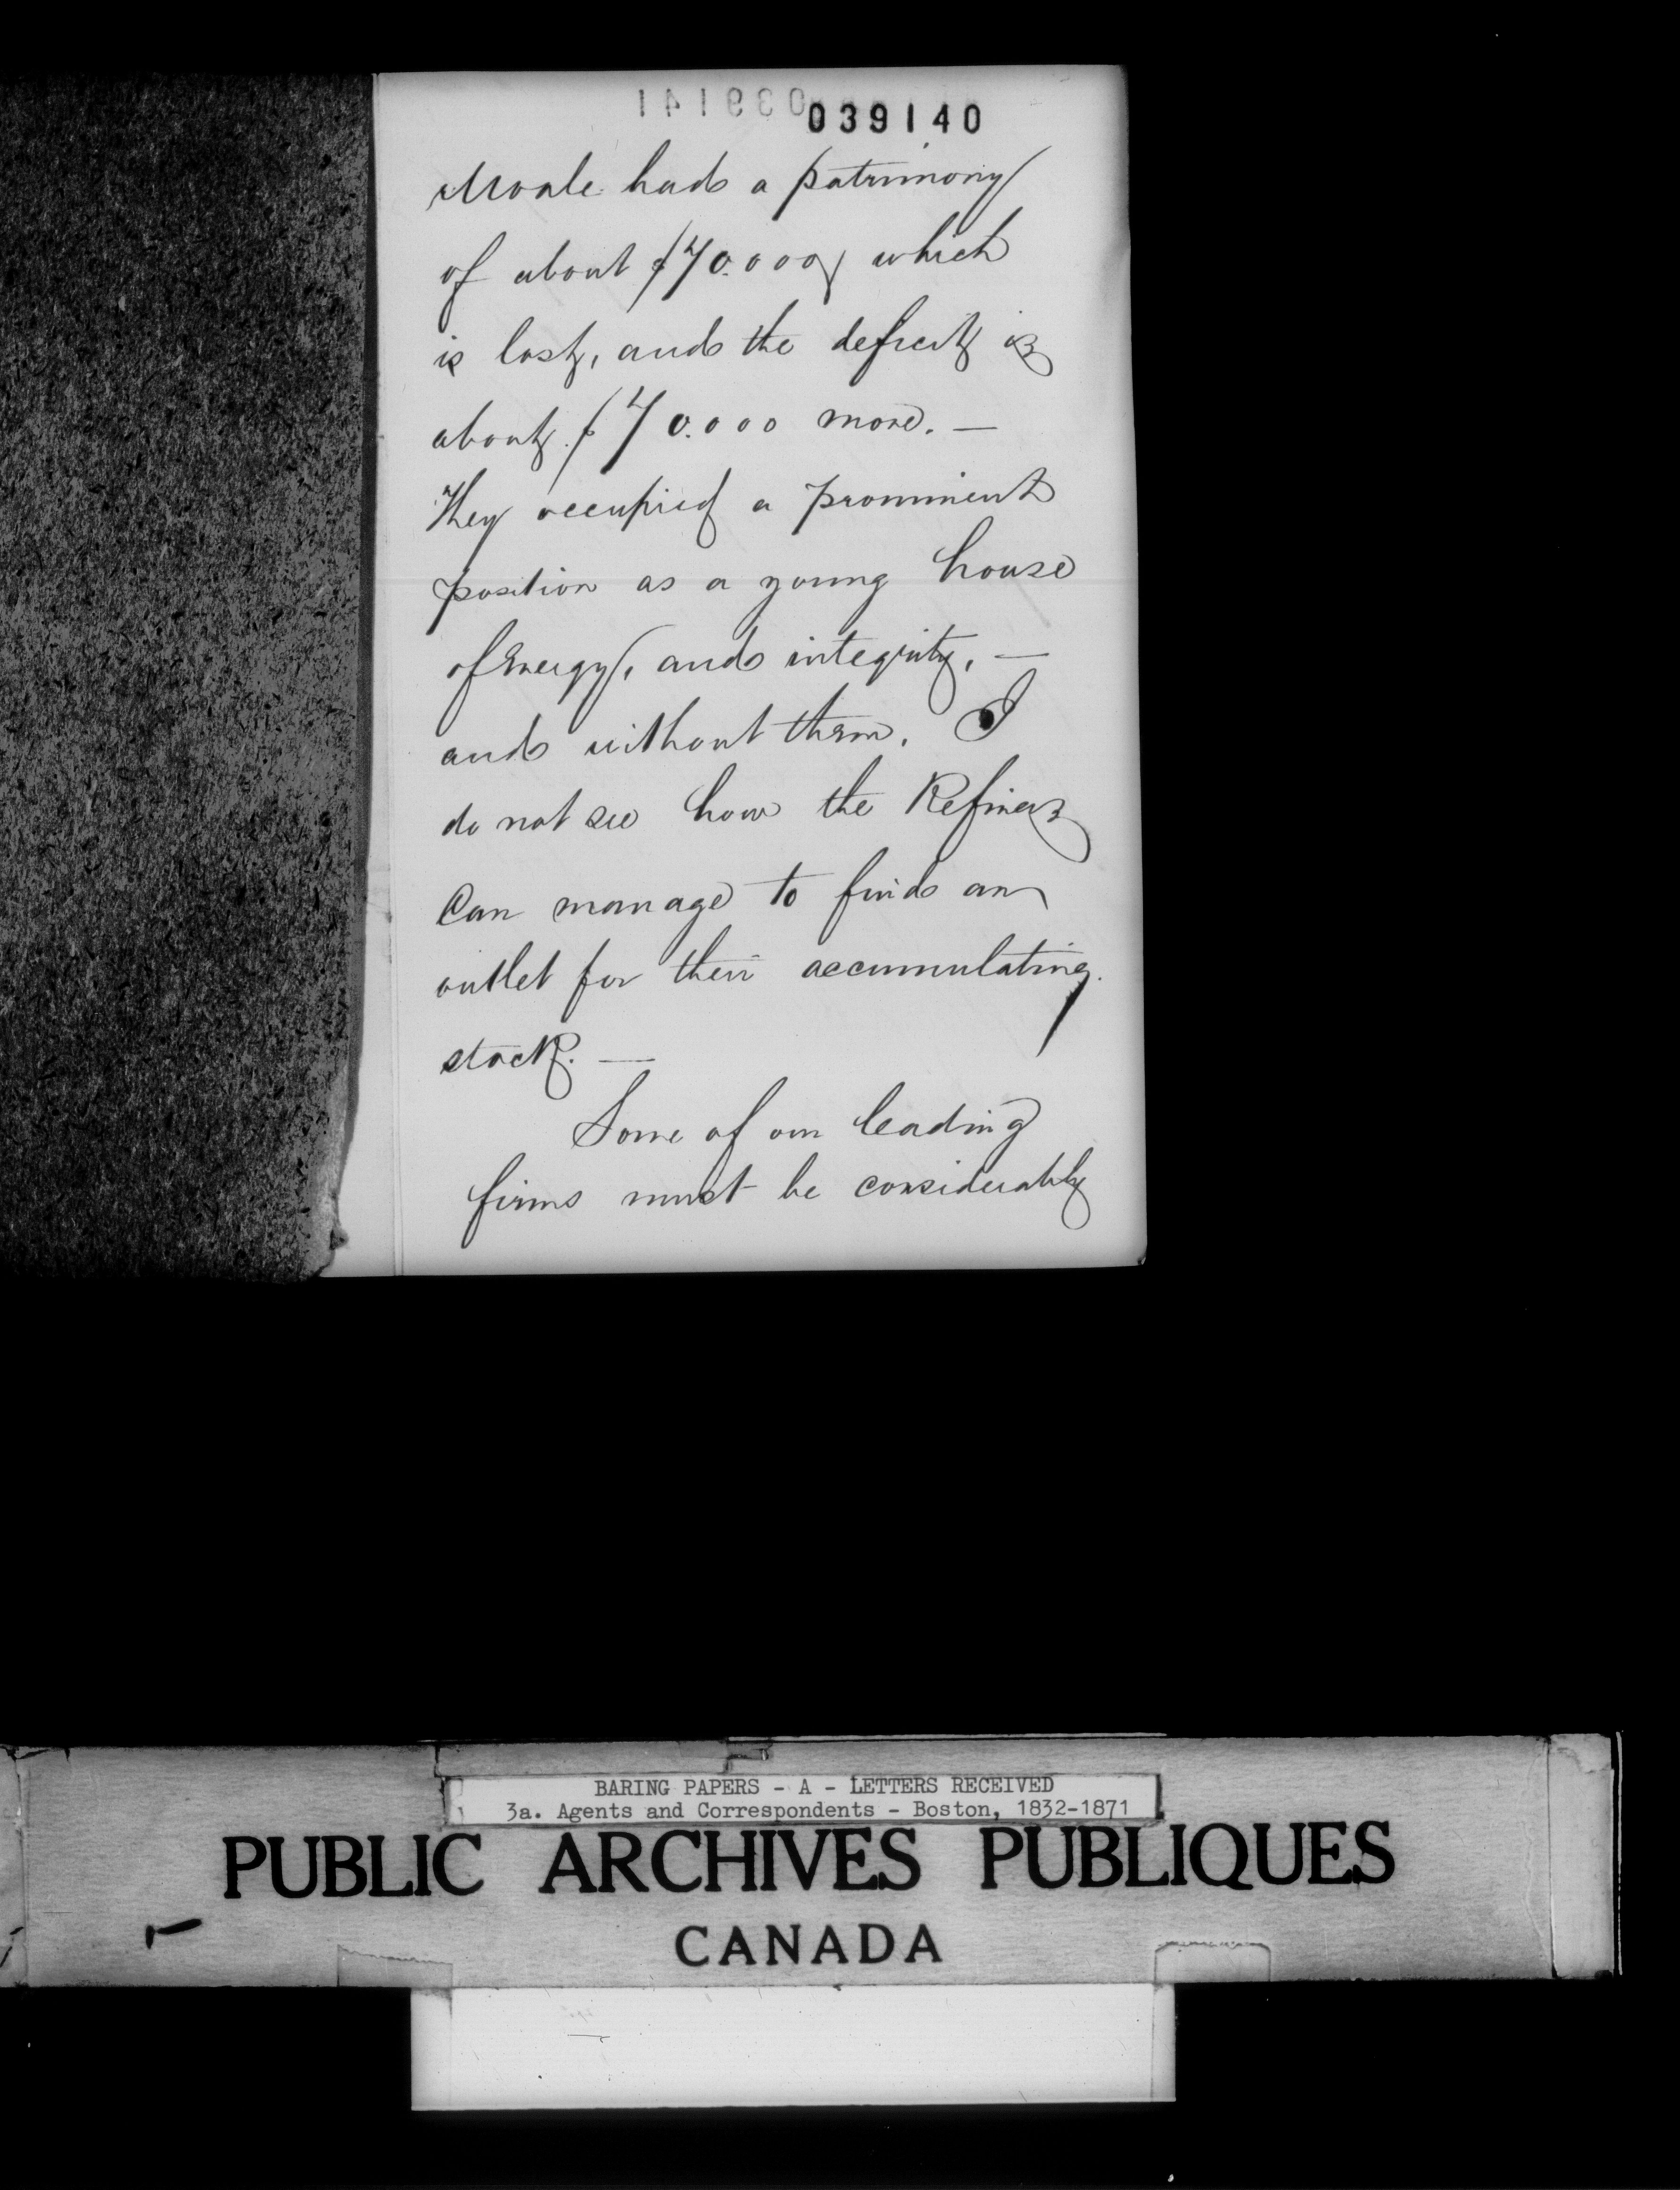 039141
039140
Moale had a patrimony
of about $70.000, which
is lost, and the deficit is
about $70.000 more. —
They occupied a prominent
position as a young house
of Energy, and integrity, —
and without them, I
do not see how the Refiners
Can manage to find an
outlet for their accumulating
stock. —
Some of our leading
firms must be considerably
BARING PAPERS - A - LETTERS RECEIVED
3a. Agents and Correspondents - Boston, 1832-1871
PUBLIC ARCHIVES PUBLIQUES
CANADA